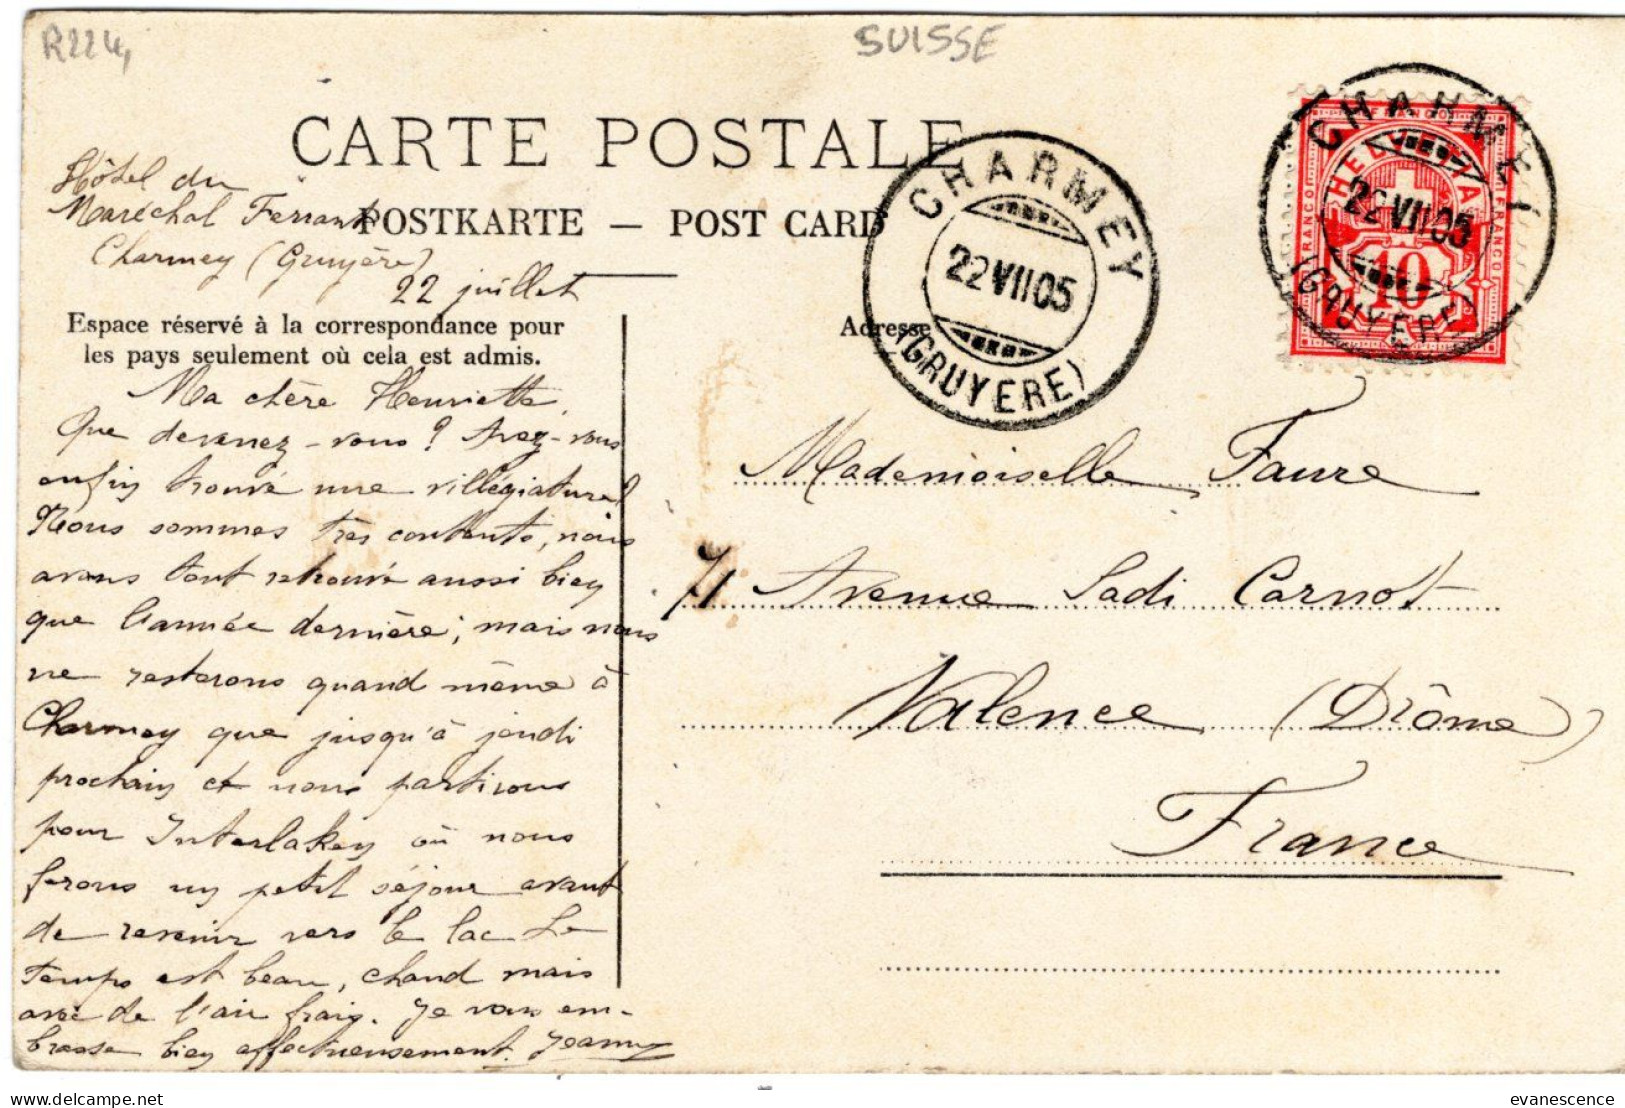 R224,
SUISSE
CARTE POSTALE
POSTKARTE — POST CARD
Hôtel du
Maréchal Ferrant
Charmey (Gruyère)
22 juillet
Espace réservé à la correspondance pour
les pays seulement où cela est admis.
Ma chère Henriette,
Que devenez-vous ? Avez-vous
enfin trouvé une villégiature?
Nous sommes très contents, nous
avons tout retrouvé aussi bien
que l'année dernière; mais nous
ne resterons quand même à
Charmey que jusqu'à jeudi
prochain et nous partirons
pour Interlaken où nous
ferons un petit séjour avant
de revenir vers le lac Le
temps est beau, chaud mais
avec de l'air frais. Je vous em-
brasse bien affectueusement. Jeanne
CHARMEY
22 VII 05
(GRUYERE)
CHARMEY
22 VII 05
(GRUYERE)
FRANCO
HELVETIA
FRANCO
10
Adresse
Mademoiselle Faure
71 Avenue Sadi Carnot
Valence (Drôme)
France
evanescence